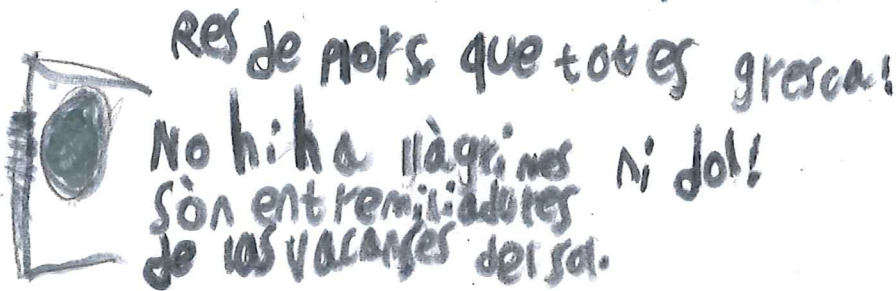 Res de plors. que totes gresca!
No hi ha llàgrimes ni dol!
Sòn entremiliadures
de las vacanses del sol.